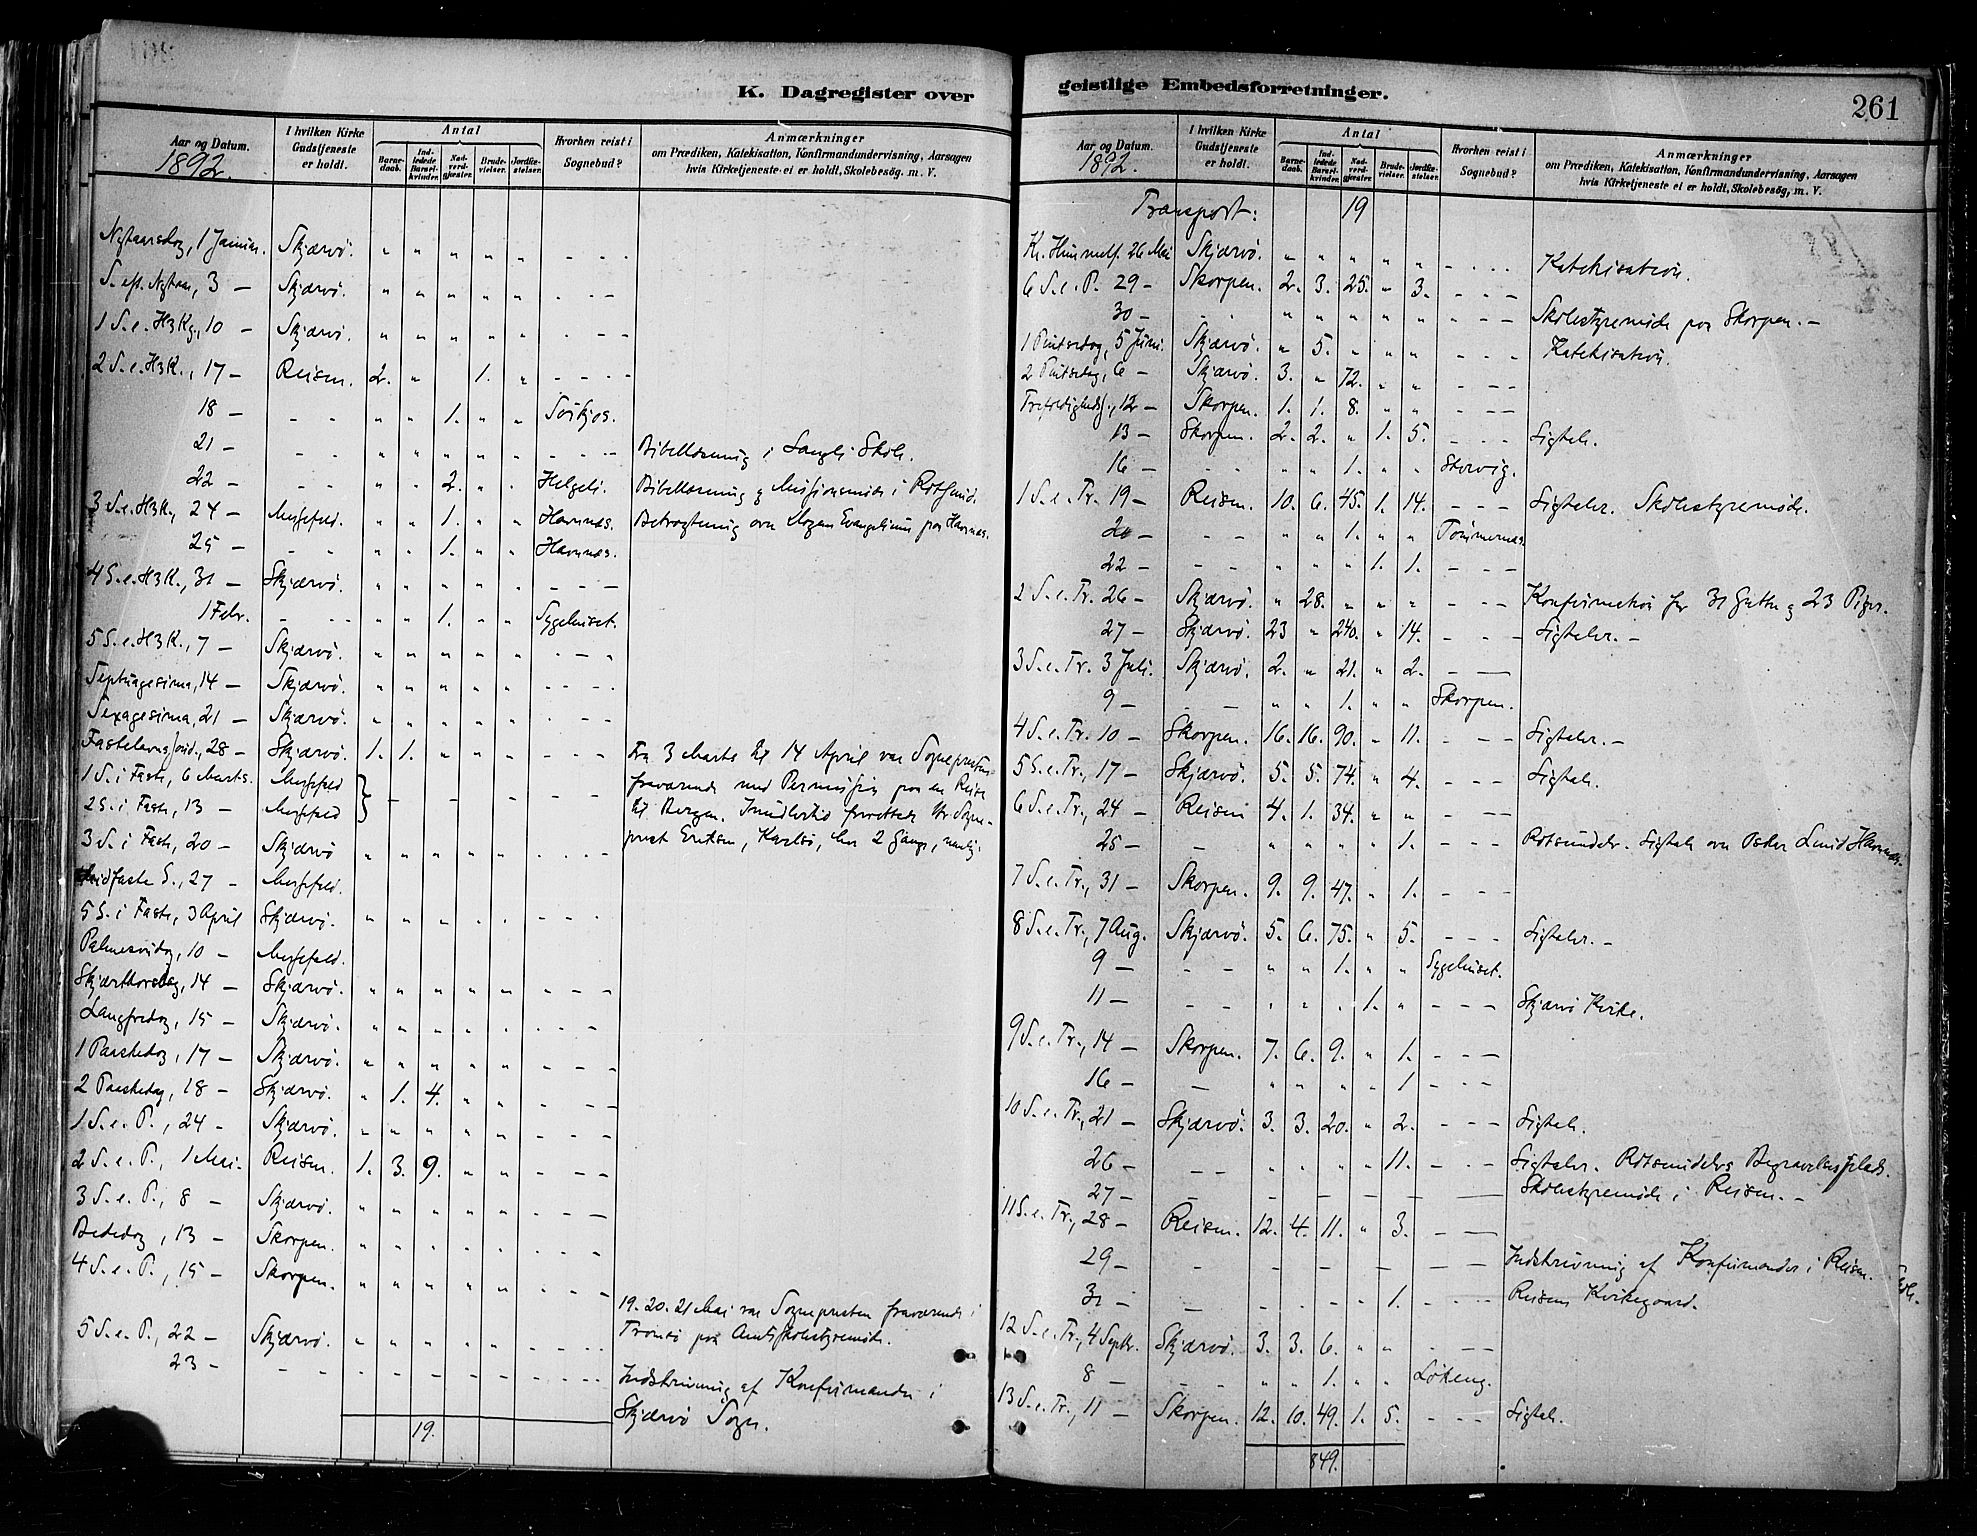 K. Dagregister over
Aar og Datum. I hvilken Kirke Gudstjeneste er holdt. Antal Barnedaab. Indledede Barselkvinder. Nadverdgjester. Brudevielser. Jordfæstelser. Hvorhen reist i Sognebud? Anmærkninger
om Prædiken, Katekisation, Konfirmandundervisning, Aarsagen
hvis Kirketjeneste ei er holdt, Skolebesøg. m. V.
1892.
Nytaarsdag, 1 Januar. Skjærvö. " " " " " - - -
S. eft. Nytaar, 3 — Skjærvö. " " " " " - - -
1 S. e. H3Kg, 10 — Skjærvö. " " " " " - - -
2 S. e. H3K., 17 — Reisen. 2. " 1. " - - -
18 — - - " " 1. " " Sörkjos.
21 — - - " " " " " - - - Bibellæsning i Langli Skole.
22 — - - " " 2. " " Helgeli. Bibellæsning og Missionsmöde i Rotsund.
3 S. e. H3K., 24 — Messefald. " " 1. " " Havnnæs. Betragtning over Dagens Evangelium paa Havnnæs.
25 — - - " " 1. " " Havnnæs.
4 S. e. H3K., 31 — Skjærvö. " " " " " - - -
1 Febr. - - " " 1. " " Sygehuset.
5 S. e. H3K., 7 — Skjærvö. " " " " " - - -
Septuagesima, 14 — Skjærvö. " " " " " - - -
Sexagesima, 21 — Skjærvö. " " " " " - - -
Fastelavnssönd., 28 — Skjærvö. 1. 1. " " " - - - Fra 3 Marts til 14 April var Sognepresten
1 S. i Faste, 6 Marts. Messefald fraværende med Permission paa en Reise
2 S. i Faste, 13 — Messefald til Bergen. Imidlertid forrettede Hr. Sogne-
3 S. i Faste, 20 — Skjærvö " " " " " - - - prest Eriksen, Karlsö, her 2 Gange, nemlig.
Midfaste S., 27 — Messefald.
5 S. i Faste, 3 April Skjærvö. " " " " " - - -
Palmesöndag, 10 — Messefald.
Skjærthorsdag, 14 — Skjærvö. " " " " " - - -
Langfredag, 15 — Skjærvö. " " " " " - - -
1 Paaskedag, 17 — Skjærvö. " " " " " - - -
2 Paaskedag, 18 — Skjærvö. " 1. 4. " " - - -
1 S. e. P., 24 — Skjærvö. " " " " " - - -
2 S. e. P., 1 Mai. Reisen. 1. 3. 9. " " - - -
3 S. e. P., 8 — Skjærvö. " " " " " - - -
Bededag, 13 — Skorpen. " " " " " - - -
4 S. e. P., 15 — Skorpen. " " " " " - - -
19. 20. 21 Mai var Sognepresten fraværende i
5 S. e. P., 22 — Skjærvö. " " " " " - - - Tromsö paa Amtsskolestyremöde.
23 — - - - - - - - - - - Indskrivning af Konfirmander i
Skjærvö Sogn.
19.
geistlige Embedsforretninger.
261
Aar og Datum. I hvilken Kirke Gudstjeneste er holdt. Antal Barnedaab. Indledede Barselkvinder. Nadverdgjester. Brudevielser. Jordfæstelser. Hvorhen reist i Sognebud? Anmærkninger
om Prædiken, Katekisation, Konfirmandundervisning, Aarsagen
hvis Kirketjeneste ei er holdt, Skolebesøg, m. V.
1892.
Transport: 19
Kr. Himmelf. 26 Mai Skjærvö. " " " " " - - - Katekisation.
6 S. e. P. 29 — Skorpen. 2. 3. 25. " 3. - - -
30 — - - " " " " " - - - Skolestyremöde paa Skorpen. —
1 Pintsedag, 5 Juni. Skjærvö. " 5. " " " - - - Katekisation.
2 Pintsedag, 6 — Skjærvö. 3. " 72. " " - - -
Trefoldighedsf., 12 — Skorpen. 1. 1. 8. " " - - -
13 — Skorpen. 2. 2. " 1. 5. - - - Ligtale.
16 — - - " " 1. " " Storvig.
1 S. e. Tr. 19 — Reisen. 10. 6. 45. 1. 14. - - - Ligtaler. Skolestyremöde.
20 — - - " " 1. " " Tömmernæs.
22 — - - " " " 1. 1. - - -
2 S. e. Tr. 26 — Skjærvö. " 28. " " " - - - Konfirmation for 31 Gutter og 23 Piger.
27 — Skjærvö. 23 " 240. " 14. - - - Ligtaler. —
3 S. e. Tr. 3 Juli. Skjærvö. 2. " 21. " 2. - —
9 — - - " " 1. " " Skorpen.
4 S. e. Tr. 10 — Skorpen. 16. 16. 90. " 11. - - - Ligtaler. —
5 S. e. Tr., 17 — Skjærvö. 5. 5. 74. " 4. - - - Ligtale.
6 S. e. Tr., 24 — Reisen 4. 1. 34. " " - —
25 — - " " " " 1. - - - Rotsundelv. Ligtale over Oskar Lund Havnnæs.
7 S. e. Tr., 31 — Skorpen. 9. 9. 47. " 1. - - -
8 S. e. Tr., 7 Aug. Skjærvö. 5. 6. 75. " 5. - - - Ligtaler. —
9 — - - " " 1. " " Sygehuset.
11 — - - " " " 1. " - - - Skjærvö Kirke.
9 S. e. Tr., 14 — Skorpen. 7. 6. 9. " 1. - - -
16 — - " " " " 1 - - -
10 S. e. Tr., 21 — Skjærvö. 3. 3. 20. " 2. - - - Ligtale.
26 — - - " " " " 11. - - - Ligtaler. Rotsundelvs Begravelsesplads.
27 — - - - - - - - — Skolestyremöde i Reisen. —
11 S. e. Tr., 28 — Reisen. 12. 4. 11. " 3. - —
29 — - - - - - - - — Indskrivning af Konfirmander i Reisen.
31 — - - - - - 1. - - - Reisens Kirkegaard.
12 S. e. Tr., 4 Septbr. Skjærvö. 3. 3. 6. " " - - —
8 — - - " " 1. " " Lökeng.
13 S. e. Tr., 11 — Skorpen. 12. 10. 49. 1. 5. - - - Ligtale.
849.